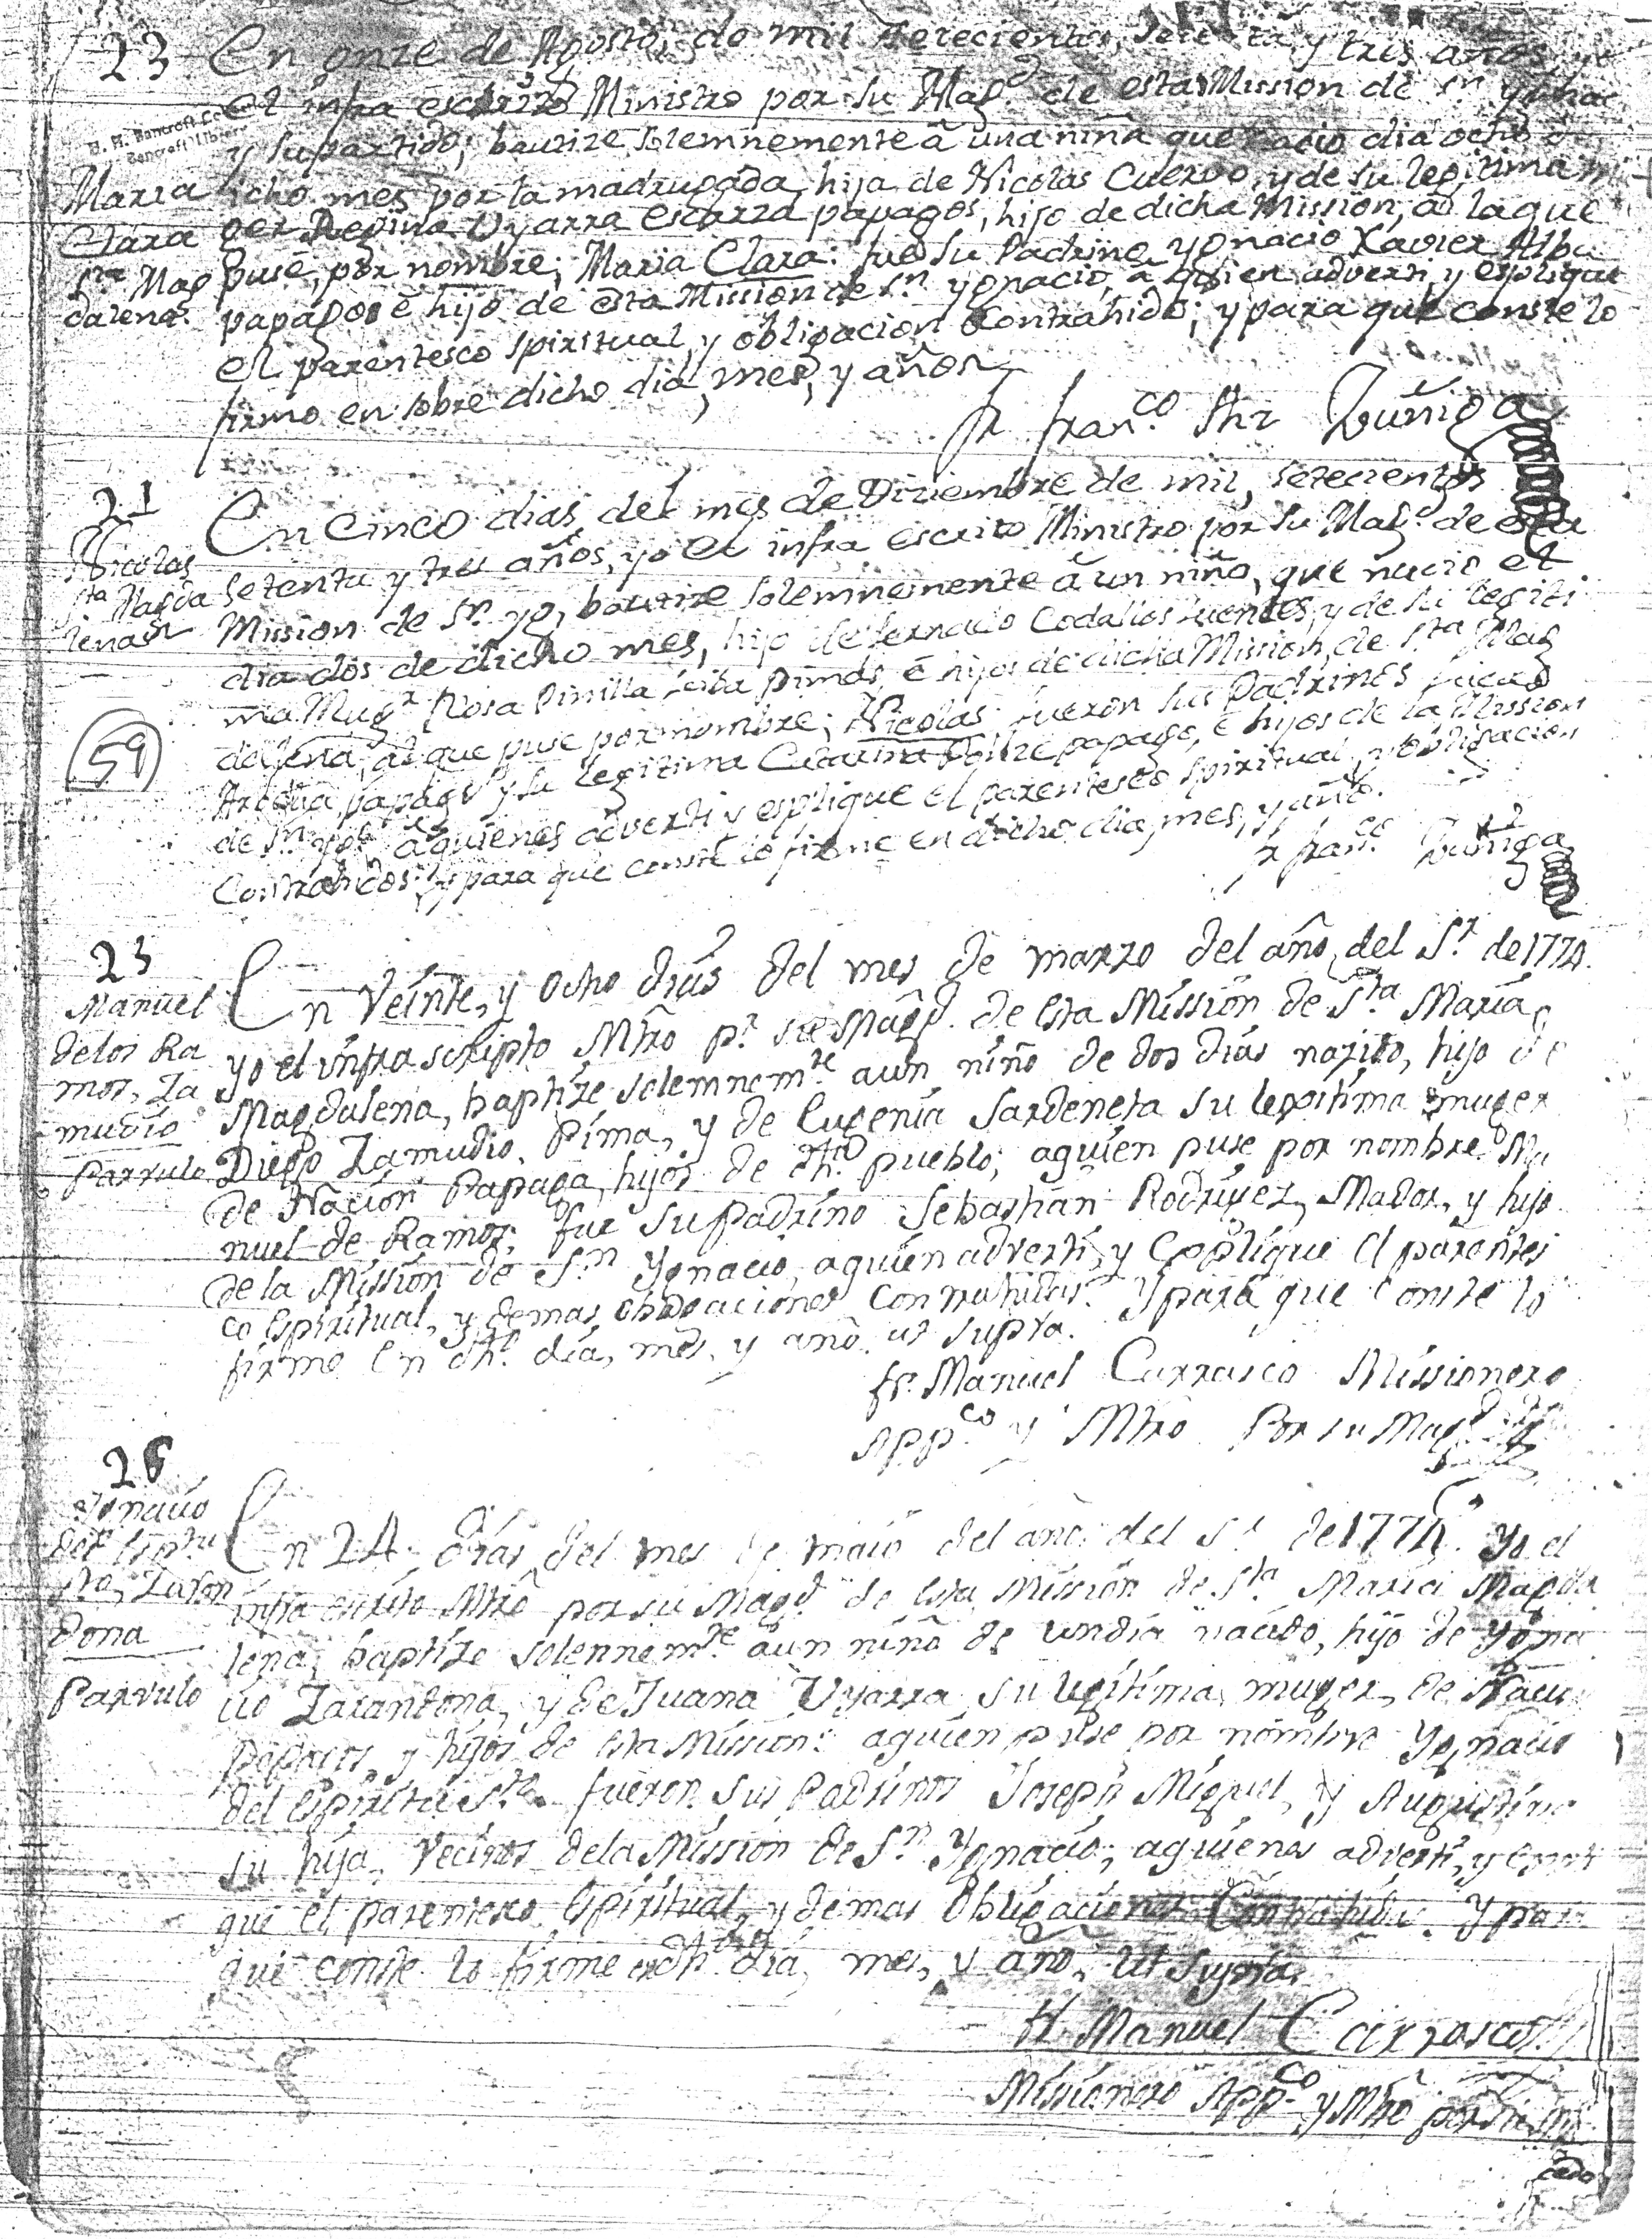 23 En onze de Agosto, de mil setecientos, setenta y tres años, yo
el infra escrito Ministro por su Mag.d de esta Mission de S.n Ygnac
H. H. Bancroft Co
Bancroft Libra
y su partido; bautize solemnemente â una niña que nacio dia ocho d
Maria dicho mes por la madrugada, hija de Nicolas Cuervo, y de su legitima mu
Clara ger Regina Uyarra escarza papagos, hijo de dicha Mission, a la que
S.ta Mag puse, por nombre; Maria Clara: fue su Padrino Ygnacio Xavier Alba
dalena. papagos è hijo de esta Mission de S.n Ygnacio, â quien adverti, y esplique
el parentesco spiritual, y obligacion contrahido; y para que conste lo
firmo en sobre dicho dia, mes, y años
Fr Fran.co Zuñiga
21 En cinco dias del mes de Diziembre de mil, setecientos
Nicolas setenta y tres años, yo el infra escrito Ministro por su Mag.d de esta
S.ta Magda Mission de S.n Yg, bautize solemnemente â un niño, que nacio el
lena dia dos de dicho mes, hijo de Codallos fuentes, y de su legiti
ma Mug.r Rosa Pinilla pimas è hijos de dicha Mission, de S.ta Mag
59
dalena, al que puse por nombre; Nicolas: fueron sus Padrinos
papago y su legitima Catarina papago, è hijos de la Mission
de S.n Yg.o a quienes adverti y esplique el parentesco spiritual, y obligacion
Contrahidos; y para que conste lo firme en dicho dia, mes, y año.
Fr Fran.co Zuñiga
23
Manuel En Veinte, y ocho dias del mes de marzo del año, del S.r de 1774.
de los Ra yo el infra scripto Mtro p.r su Mag.d de esta Mission de S.ta Maria
mos, Za Magdalena, baptize solemnem.te a un niño de dos dias nazido, hijo de
mudio Diego Zamudio, Pima, y de Eugenia Sardeneta su legitima muger
Parvulo de Nacion Papaga, hijos de dho pueblo; a quien puse por nombre Ma
nuel de Ramos: fue su padrino Sebastian Rodriguez, Mador, y hijo
de la Mission de S.n Ygnacio, a quien adverti, y esplique el parentes
co Espiritual, y demas obligaciones contrahidas. Y para que conste lo
firme en dho dia, mes, y año ut supra.
fr. Manuel Carrasco Missionero
App.co y Mtro Por su Mag.d
26
Ygnacio En 24 dias del mes de maio del año del S.r de 1774. Yo el
del Espiritu infra escrito Mtro por su Mag.d de esta Mission de S.ta Maria Magda
Sto, Zaran lena, baptize solennem.te a un niño de un dia nacido, hijo de Ygna
dona cio Zarandona, y de Juana Uyarra su legitima muger, de Nacio
Parvulo papagos, y hijos de esta Mission: a quien puse por nombre Ygnacio
del Espiritu S.to. fueron sus Padrinos Joseph Miguel, y Augustina
su hija, Vecinos de la Mission de S.n Ygnacio; a quienes adverti, y espli
que el parentesco Espiritual, y demas obligaciones Contrahidas. Y para
que conste lo firme en dho dia, mes, y año, ut supra.
fr. Manuel Carrasco
Missionero App.co y Mtro por su Mag.